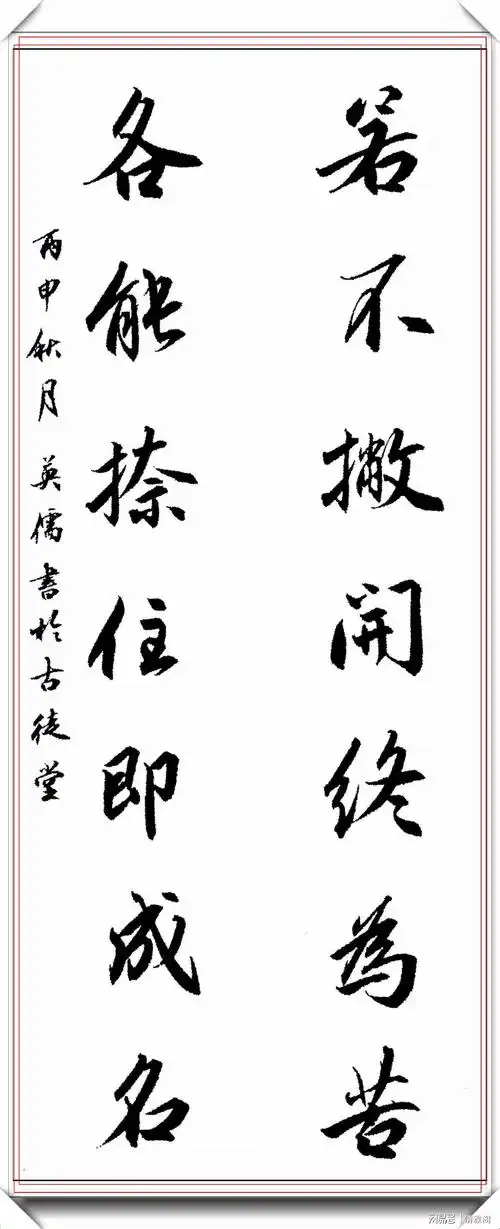 若不撇開終為苦
各能捺住即成名
丙申秋月英儒書於古徒堂
网易号